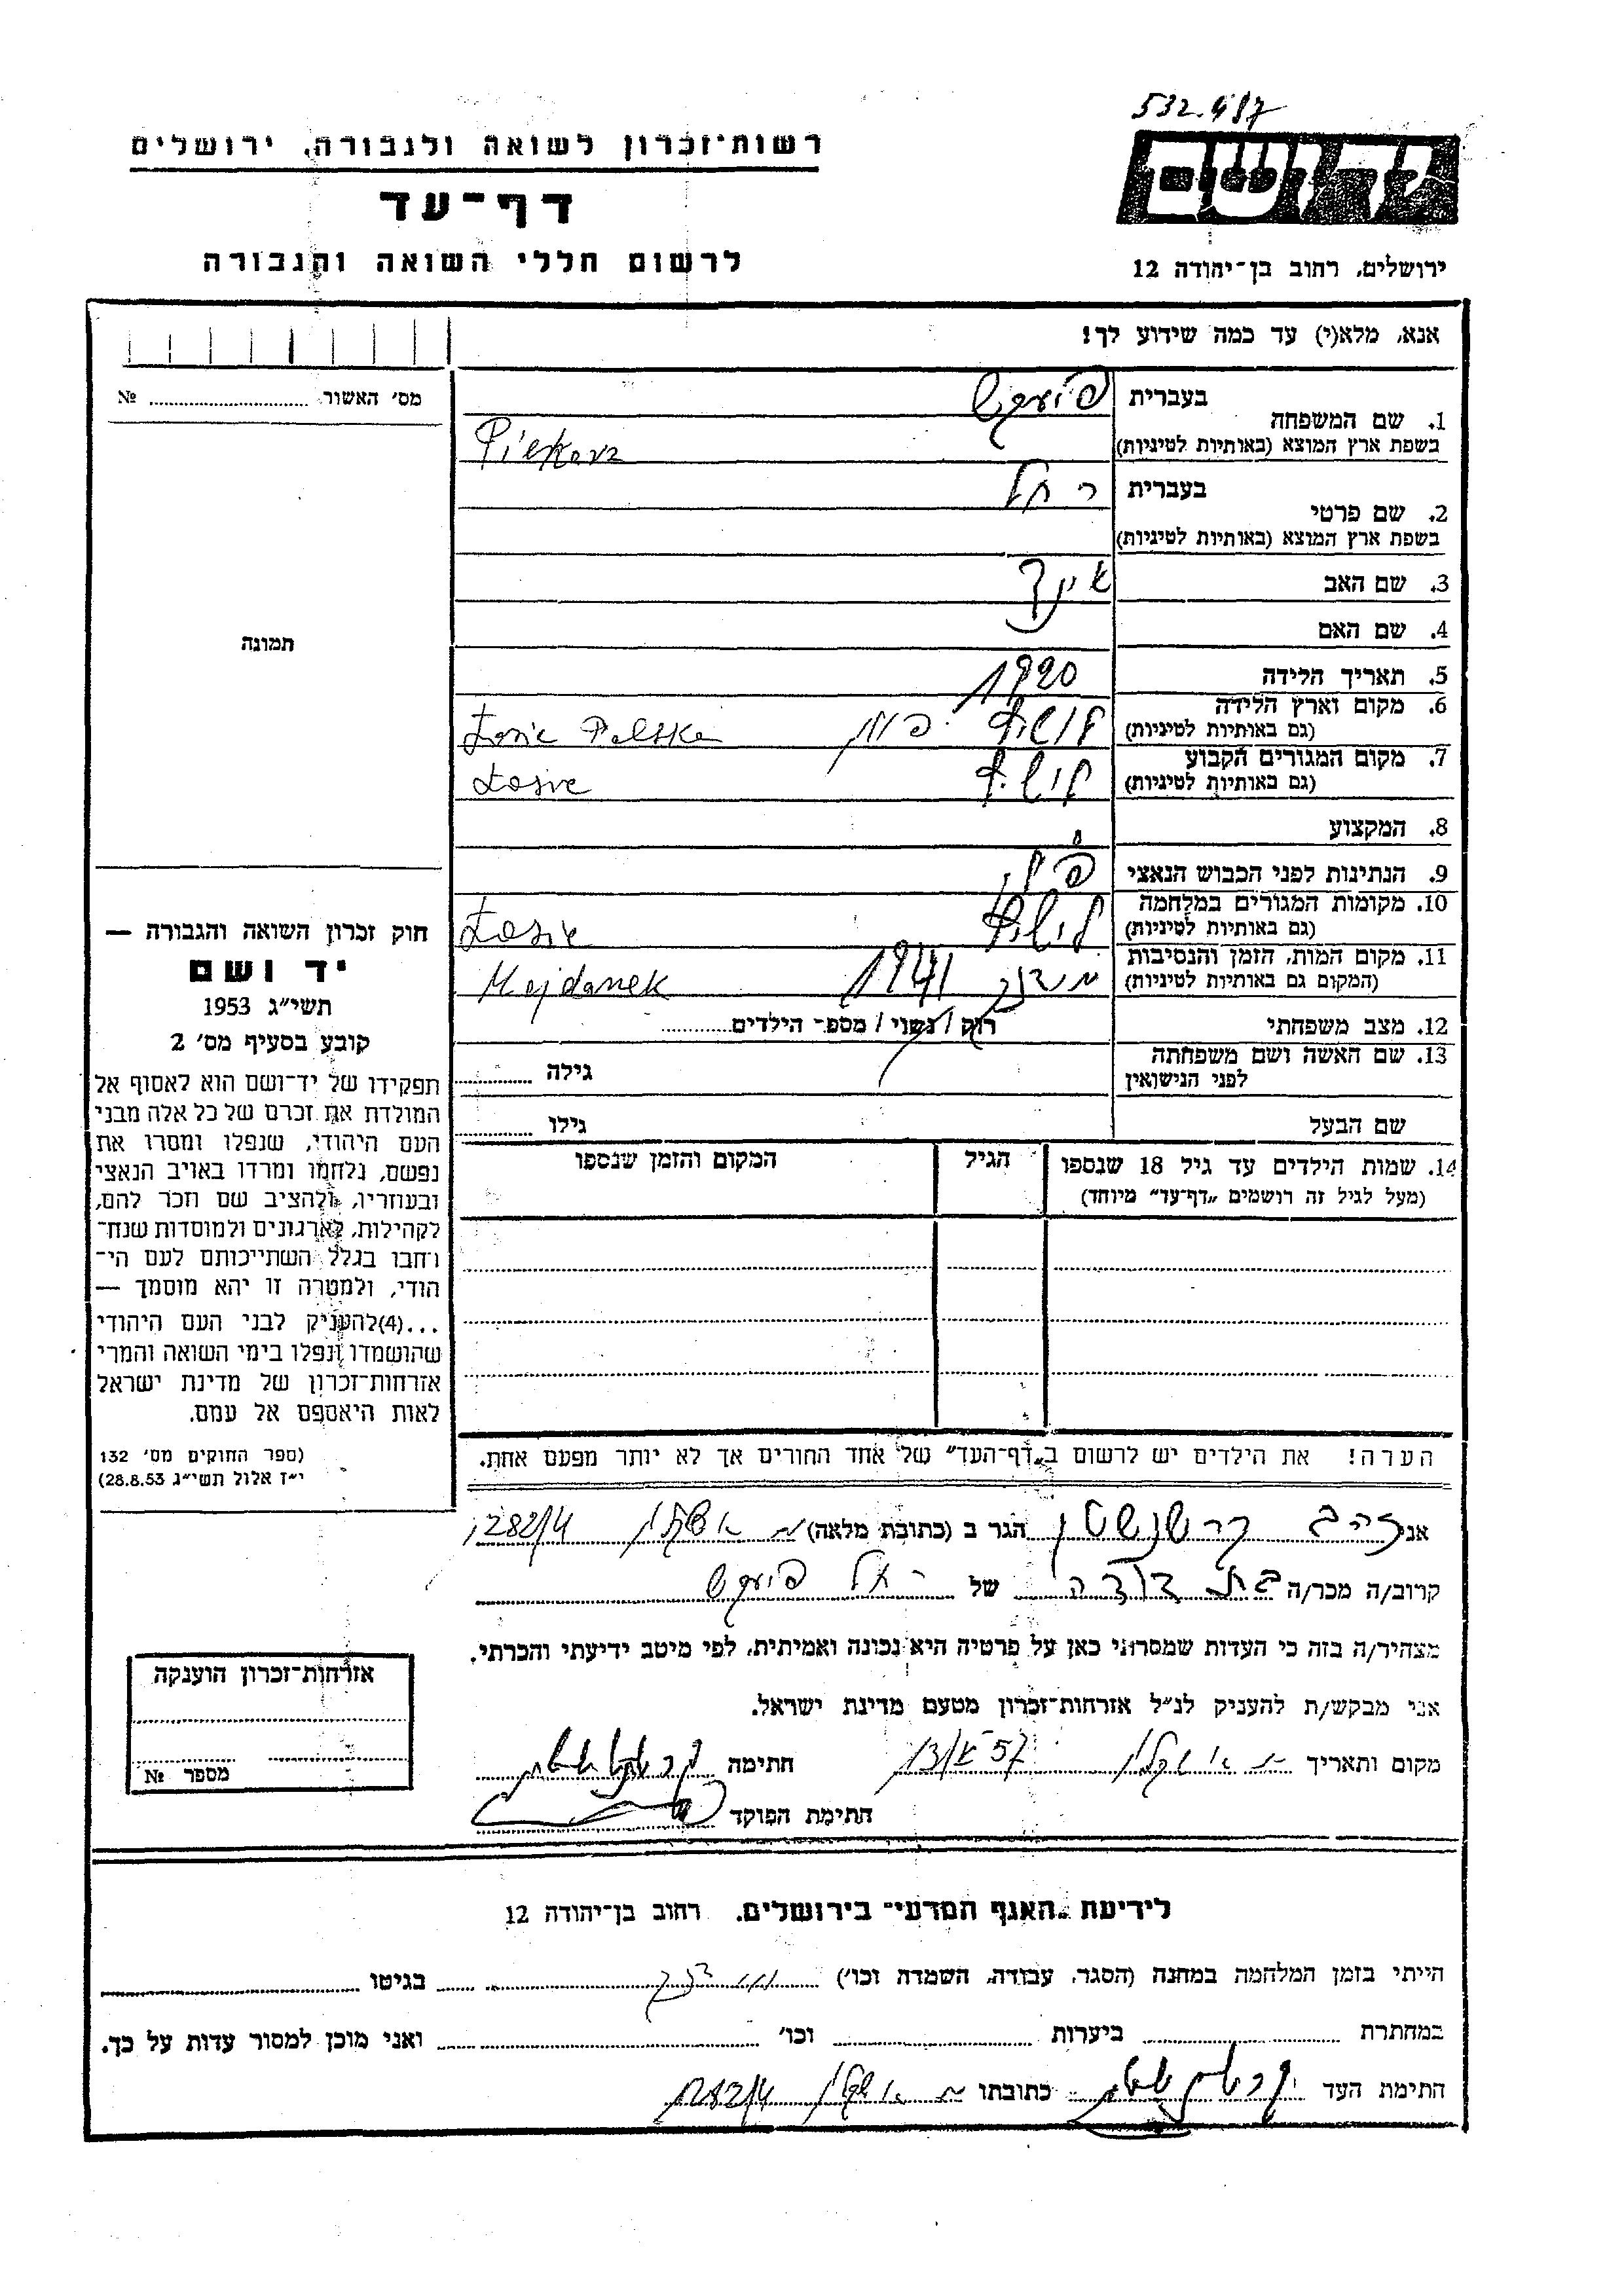 532.417
רשות־זכרון לשואה ולגבורה, ירושלים
דף־עד
לרשום חללי השואה והגבורה
יד ושם
ירושלים, רחוב בן־יהודה 12
אנא, מלא(י) עד כמה שידוע לך!
מס׳ האשור № 
1. שם המשפחה בעברית
בשפת ארץ המוצא (באותיות לטיניות) Piekarz
2. שם פרטי בעברית רחל
בשפת ארץ המוצא (באותיות לטיניות)
3. שם האב
4. שם האם
5. תאריך הלידה 1920
6. מקום וארץ הלידה (גם באותיות לטיניות) פולין Łosic Polska
7. מקום המגורים הקבוע (גם באותיות לטיניות) Łosice
8. המקצוע
9. הנתינות לפני הכבוש הנאצי
10. מקומות המגורים במלחמה (גם באותיות לטיניות) Łosice
11. מקום המות, הזמן והנסיבות (המקום גם באותיות לטיניות) מידנק 1941 Majdanek
12. מצב משפחתי רוק / נשוי / מספ׳ הילדים
13. שם האשה ושם משפחתה לפני הנישואין גילה
שם הבעל גילו
14. שמות הילדים עד גיל 18 שנספו (מעל לגיל זה רושמים „דף־עד״ מיוחד) הגיל המקום והזמן שנספו
תמונה
חוק זכרון השואה והגבורה —
יד ושם
תשי״ג 1953
קובע בסעיף מס׳ 2
תפקידו של יד־ושם הוא לאסוף אל
המולדת את זכרם של כל אלה מבני
העם היהודי, שנפלו ומסרו את
נפשם, נלחמו ומרדו באויב הנאצי
ובעוזריו, ולהציב שם וזכר להם,
לקהילות, לארגונים ולמוסדות שנח־
רחבו בגלל השתייכותם לעם הי־
הודי, ולמטרה זו יהא מוסמך —
...(4)להעניק לבני העם היהודי
שהושמדו ונפלו בימי השואה והמרי
אזרחות־זכרון של מדינת ישראל
לאות היאספם אל עמם.
(ספר החוקים מס׳ 132
י״ז אלול תשי״ג 28.8.53)
הערה! את הילדים יש לרשום ב„דף־העד״ של אחד ההורים אך לא יותר מפעם אחת.
אני זהבה הגר ב (כתובת מלאה) אשקלון 282/4
קרוב/ה מכר/ה בת דודה של רחל
מצהיר/ה בזה כי העדות שמסרתי כאן על פרטיה היא נכונה ואמיתית, לפי מיטב ידיעתי והכרתי.
אני מבקש/ת להעניק לנ״ל אזרחות־זכרון מטעם מדינת ישראל.
מקום ותאריך אשקלון חתימה
חתימת הפוקד
אזרחות־זכרון הוענקה
מספר №
לידיעת „האגף המדעי״ בירושלים. רחוב בן־יהודה 12
הייתי בזמן המלחמה במחנה (הסגר, עבודה, השמדה וכו׳) בגיטו
במחתרת ביערות וכו׳ ואני מוכן למסור עדות על כך.
חתימת העד כתובתו אשקלון 282/4